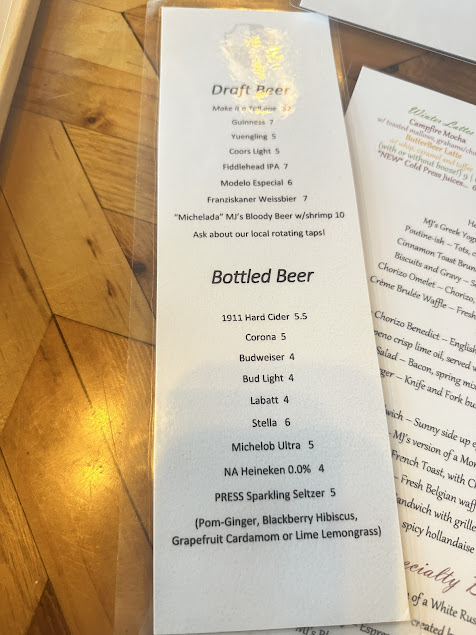 Draft Beer
Make it a
Guinness 7
Yuengling 5
Coors Light 5
Fiddlehead IPA 7
Modelo Especial 6
Franziskaner Weissbier 7
"Michelada" MJ's Bloody Beer w/shrimp 10
Ask about our local rotating taps!
Bottled Beer
1911 Hard Cider 5.5
Corona 5
Budweiser 4
Bud Light 4
Labatt 4
Stella 6
Michelob Ultra 5
NA Heineken 0.0% 4
PRESS Sparkling Seltzer 5
(Pom-Ginger, Blackberry Hibiscus,
Grapefruit Cardamom or Lime Lemongrass)
Winter Latte
Campfire Mocha
w/ toasted mallows, grahams/cho
ButterBeer Latte
w/ whip, caramel and toffee
(with or without booze!) 9 |
*NEW* Cold Press Juices...
MJ's Greek Yog
Poutine-ish – Tots, c
Cinnamon Toast Brun
Biscuits and Gravy – Sa
Chorizo Omelet – Chorizo,
Crème Brulée Waffle – Fresh
Chorizo Benedict – English
peno crisp lime oil, served w
Salad – Bacon, spring mix
rger – Knife and Fork bu
wich – Sunny side up e
– MJ's version of a Mon
French Toast, with Ch
– Fresh Belgian waff
andwich with grille
spicy hollandaise
ecialty D
of a White Rus
created b
Espres